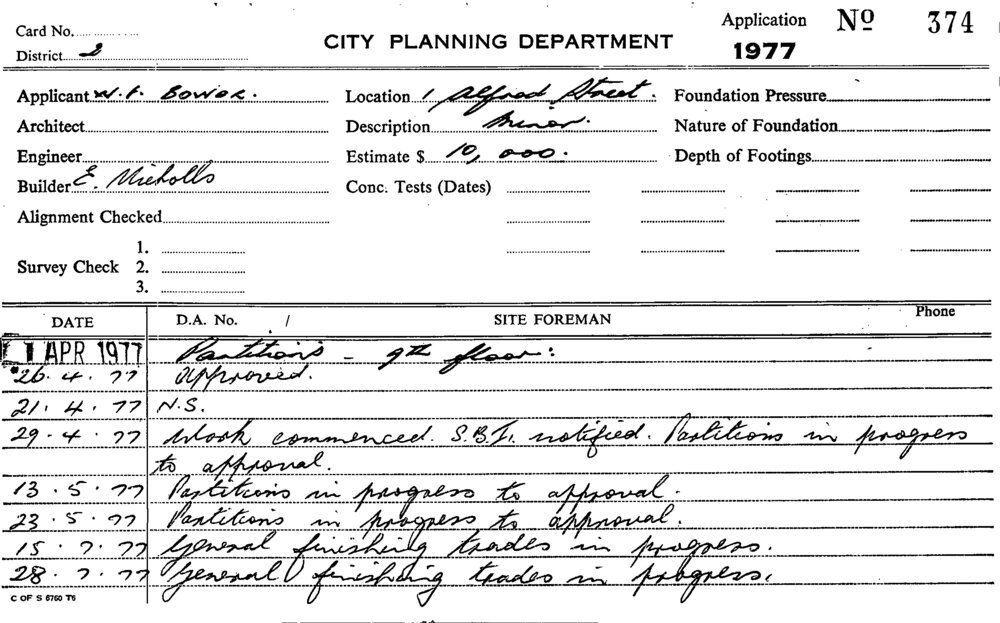 Card No.
District 2
CITY PLANNING DEPARTMENT
Application Nº 374
1977
Applicant W. F. BOWOR.
Location 1 Alfred Street.
Foundation Pressure
Architect
Description Minor.
Nature of Foundation
Engineer
Estimate $ 10,000.
Depth of Footings
Builder E. Nicholls
Conc. Tests (Dates)
Alignment Checked
Survey Check
1.
2.
3.
DATE D.A. No. / SITE FOREMAN Phone
1 APR 1977 Partitions - 9th floor:
26.4.77 approved.
21.4.77 N.S.
29.4.77 Work commenced. S.B.I. notified. Partitions in progress
to approval.
13.5.77 Partitions in progress to approval.
23.5.77 Partitions in progress to approval.
15.7.77 General finishing trades in progress.
28.7.77 General finishing trades in progress.
C OF S 6760 T6